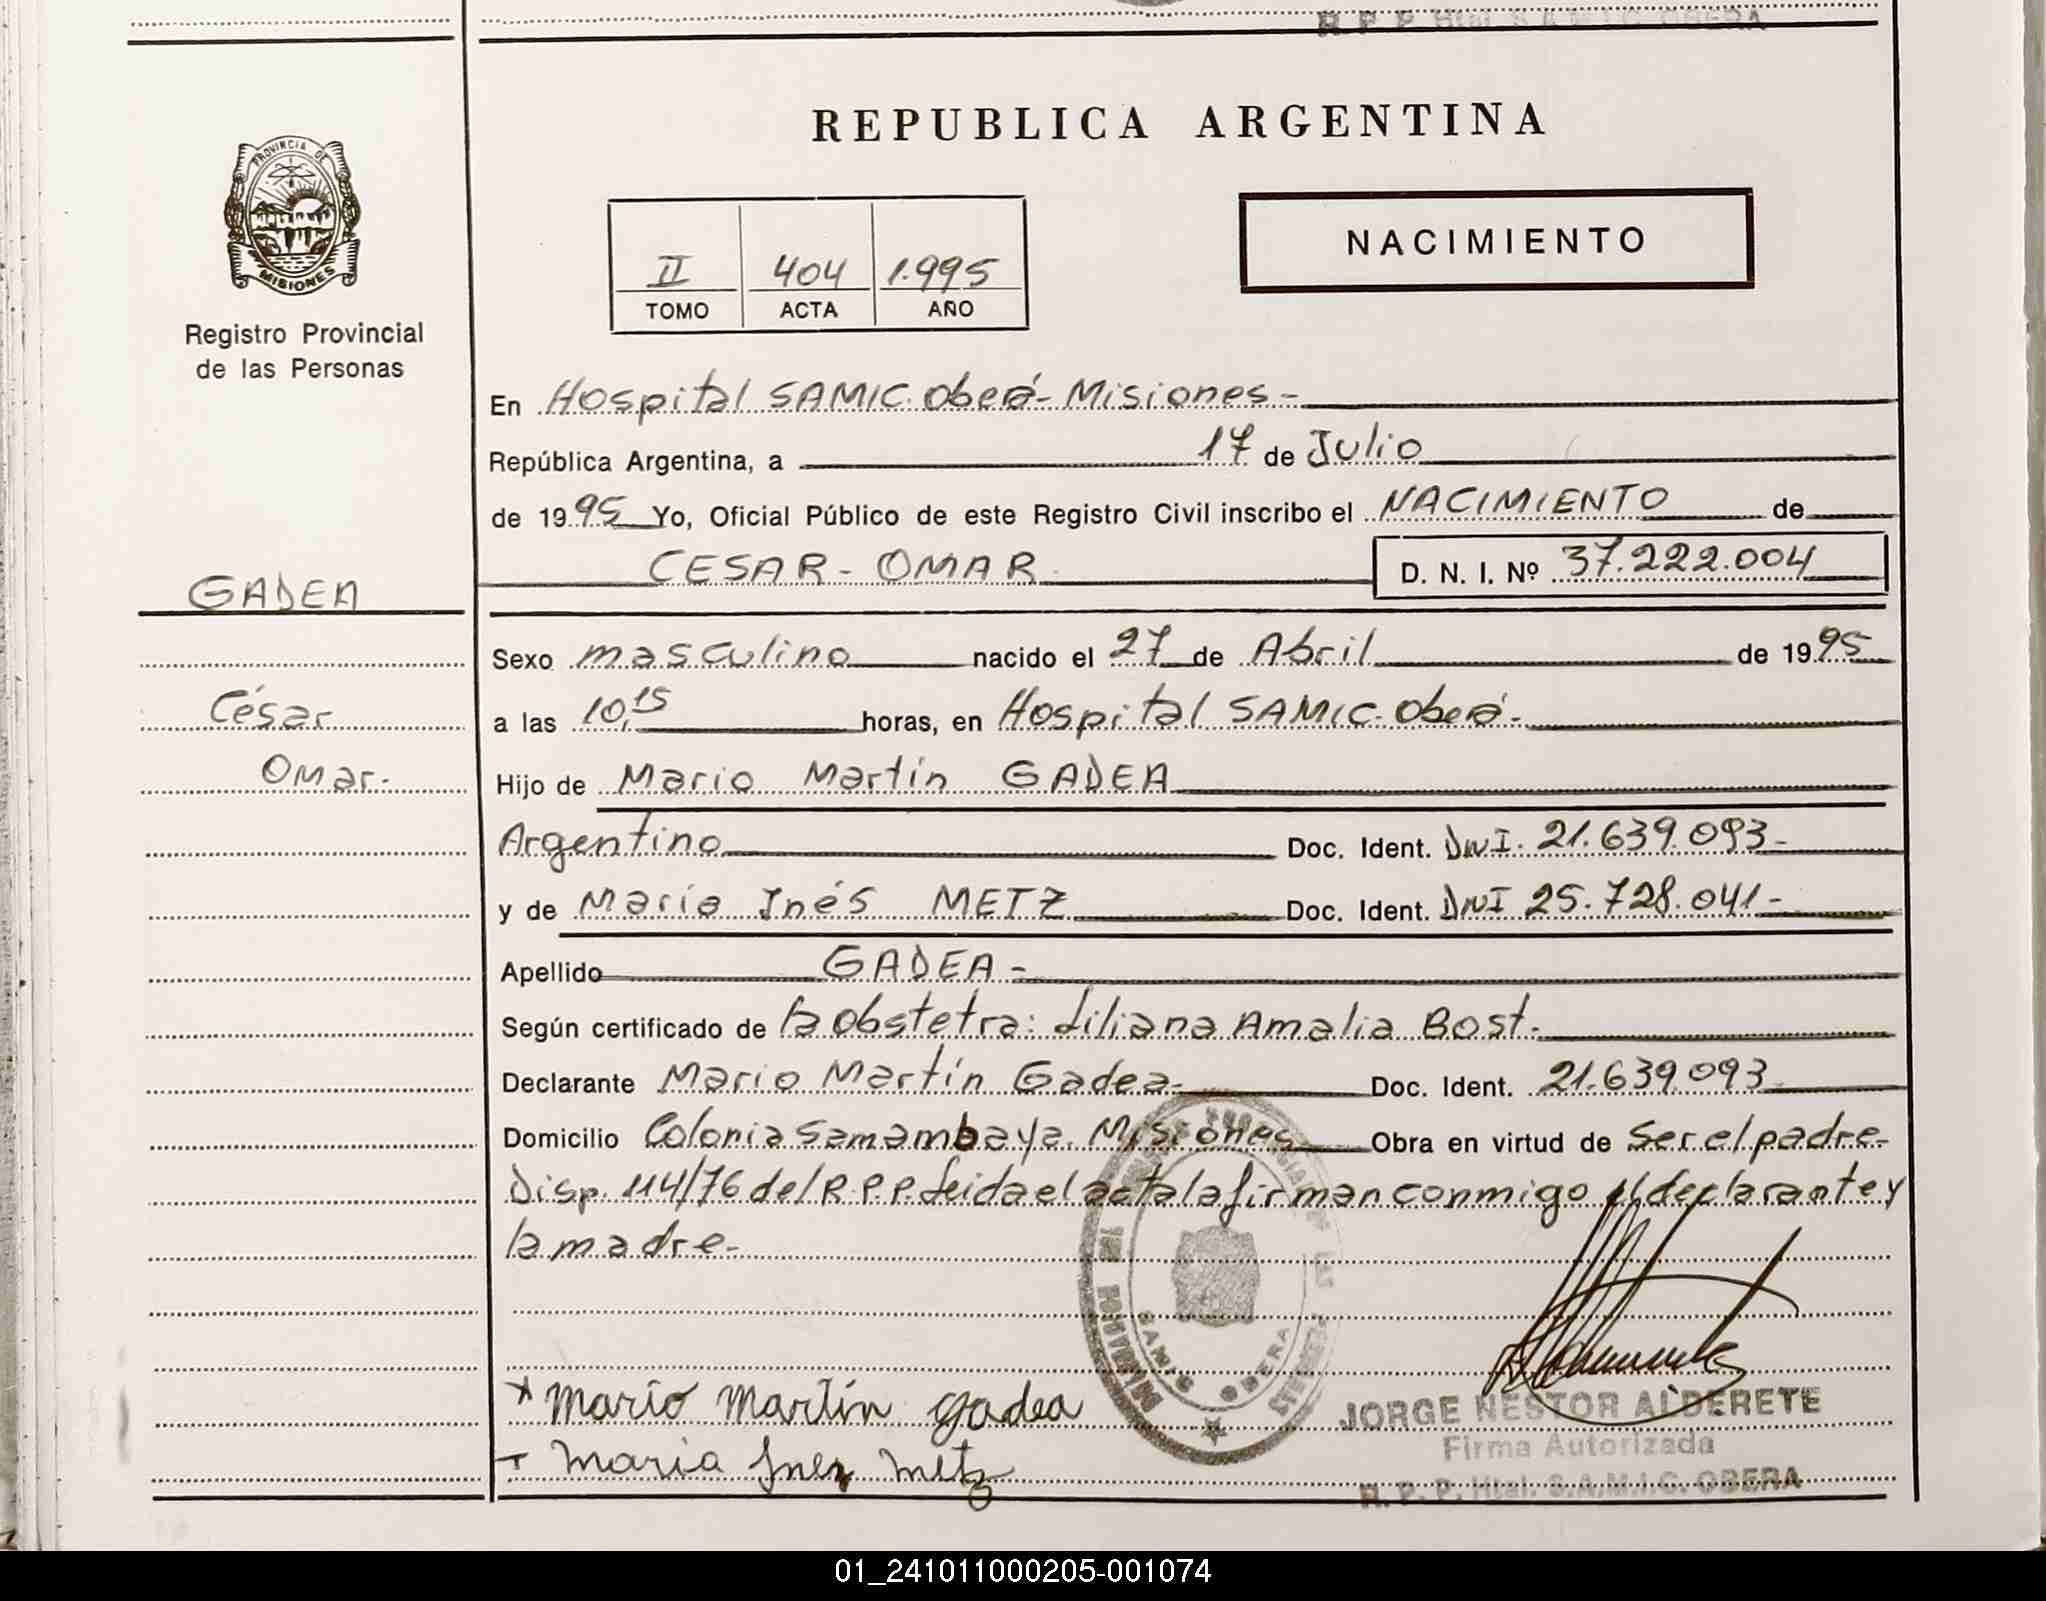 R. P. P. Htal. S.A.M.I.C. OBERA
REPUBLICA ARGENTINA
PROVINCIA DE
MISIONES
Registro Provincial
de las Personas
II 404 1.995
TOMO ACTA AÑO
NACIMIENTO
En Hospital SAMIC. Oberá - Misiones -
República Argentina, a 17 de Julio
de 1995 Yo, Oficial Público de este Registro Civil inscribo el NACIMIENTO de
CESAR - OMAR D. N. I. Nº 37.222.004
GADEA
César
Omar.-
Sexo masculino nacido el 27 de Abril de 1995
a las 10,15 horas, en Hospital SAMIC. Oberá -
Hijo de Mario Martín GADEA
Argentino Doc. Ident. DNI. 21.639.093-
y de María Inés METZ Doc. Ident. DNI 25.728.041-
Apellido GADEA -
Según certificado de la obstetra: Liliana Amalia Bost.
Declarante Mario Martín Gadea- Doc. Ident. 21.639.093
Domicilio Colonia Samambaya. Misiones Obra en virtud de Ser el padre-
Disp. 114/76 del R.P.P. Leida el acta la firman conmigo el declarante y
la madre-
SAMIC OBERA
* Mario Martín Gadea
Maria Inez Metz
JORGE NESTOR ALDERETE
Firma Autorizada
R. P. P. Htal. S.A.M.I.C. OBERA
01_241011000205-001074